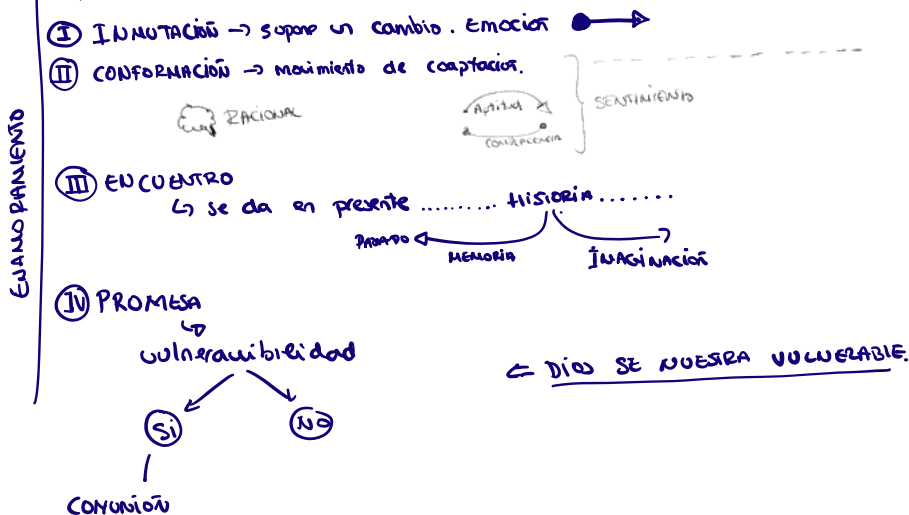 ENAMORAMIENTO
I INMUTACIÓN → supone un cambio. Emoción
II CONFORMACIÓN → movimiento de coaptación.
RACIONAL
Aptitud
COMPLACENCIA
SENTIMIENTO
III ENCUENTRO
↳ se da en presente ......... HISTORIA.......
PASADO
MEMORIA
IMAGINACIÓN
IV PROMESA
vulneravibilidad
⇐ DIOS SE MUESTRA VULNERABLE.
Si
No
COMUNIÓN